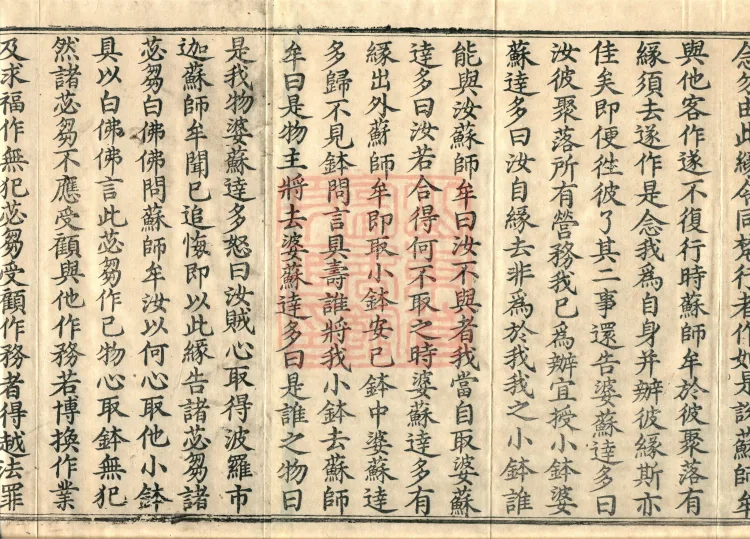 念多由此緣令同梵行者作如是說蘇師牟
與他客作遂不復行時蘇師牟於彼聚落有
緣須去遂作是念我為自身并辦彼緣斯亦
佳矣即便往彼了其二事還告婆蘇達多曰
汝彼聚落所有營務我已為辦宜授小鉢婆
蘇達多曰汝自緣去非為於我我之小鉢誰
能與汝蘇師牟曰汝不與者我當自取婆蘇
達多曰汝若合得何不取之時婆蘇達多有
緣出外蘇師牟即取小鉢安己鉢中婆蘇達
多歸不見鉢問言具壽誰將我小鉢去蘇師
牟曰是物主將去婆蘇達多曰是誰之物曰
是我物婆蘇達多怒曰汝賊心取得波羅市
迦蘇師牟聞已追悔即以此緣告諸苾芻諸
苾芻白佛佛問蘇師牟汝以何心取他小鉢
具以白佛佛言此苾芻作己物心取鉢無犯
然諸苾芻不應受顧與他作務若博換作業
及求福作無犯苾芻受顧作務者得越法罪